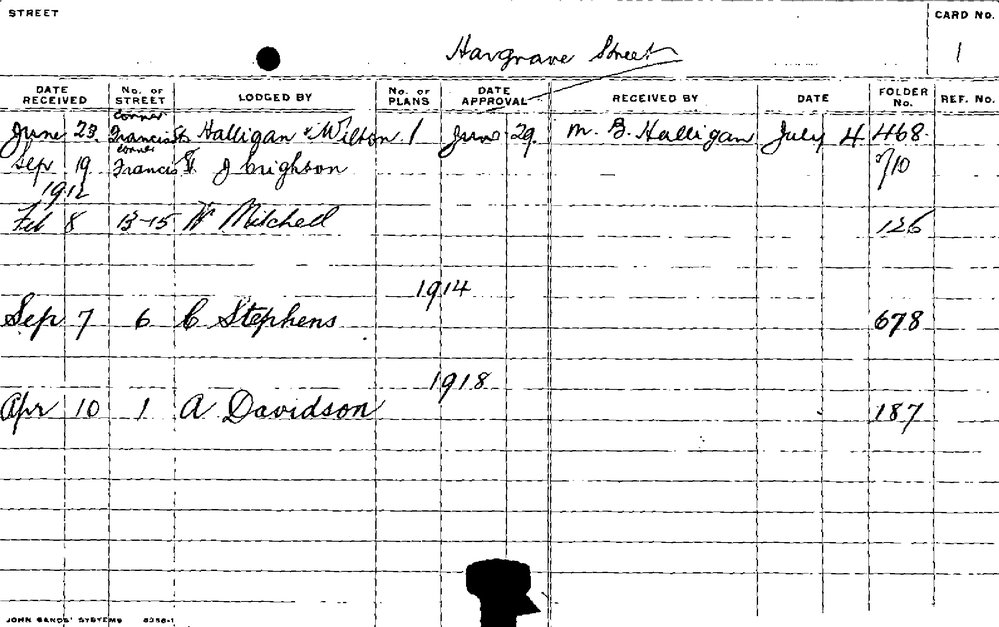 STREET
CARD No.
Hargrave Street
1
DATE RECEIVED No. OF STREET LODGED BY No. OF PLANS DATE APPROVAL RECEIVED BY DATE FOLDER No. REF. No.
corner
June 23. Francis St Halligan & Wilton 1 June 29. M. B. Halligan July 4 468
corner
Sep 19 Francis St J 710
1912
Feb 8 13-15 W Mitchell 126
1914
Sep 7 6 C Stephens 678
1918
Apr 10 1 A Davidson 187
JOHN SANDS' SYSTEMS